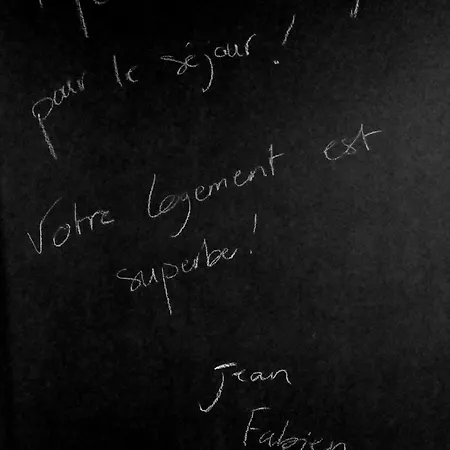 pour le séjour !
Votre logement est
superbe !
Jean
Fabien